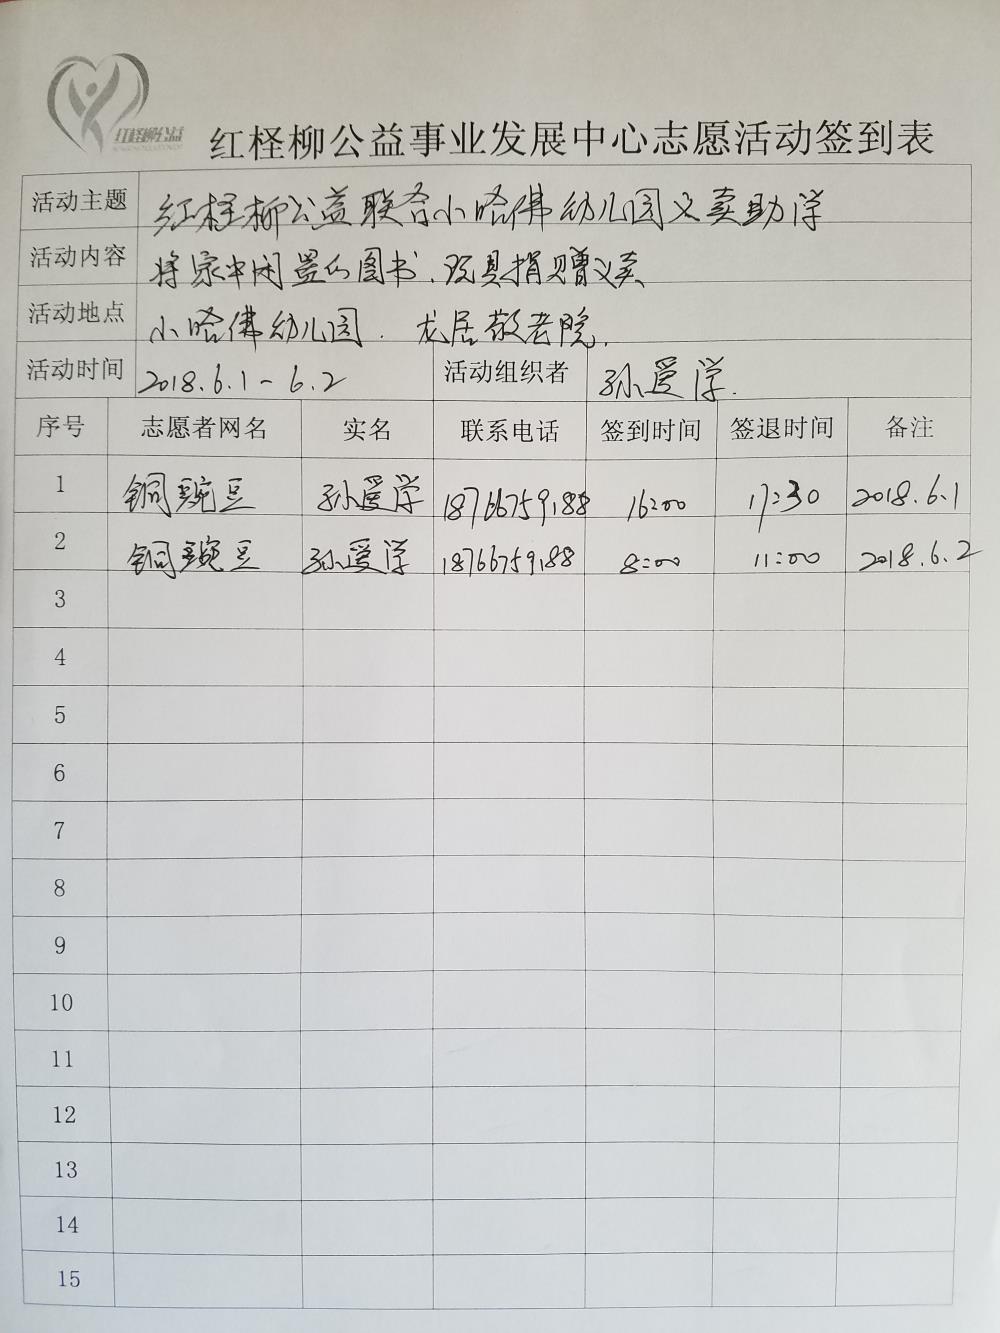 红柽柳公益
红柽柳公益事业发展中心志愿活动签到表
活动主题 红柽柳公益联合小哈佛幼儿园义卖助学
活动内容 将家中闲置的图书、玩具捐赠义卖
活动地点 小哈佛幼儿园. 龙居敬老院.
活动时间 2018.6.1-6.2 活动组织者 孙爱学.
序号 志愿者网名 实名 联系电话 签到时间 签退时间 备注
1 铜豌豆 孙爱学 18766759188 16:00 17:30 2018.6.1
2 铜豌豆 孙爱学 18766759188 8:00 11:00 2018.6.2
3
4
5
6
7
8
9
10
11
12
13
14
15